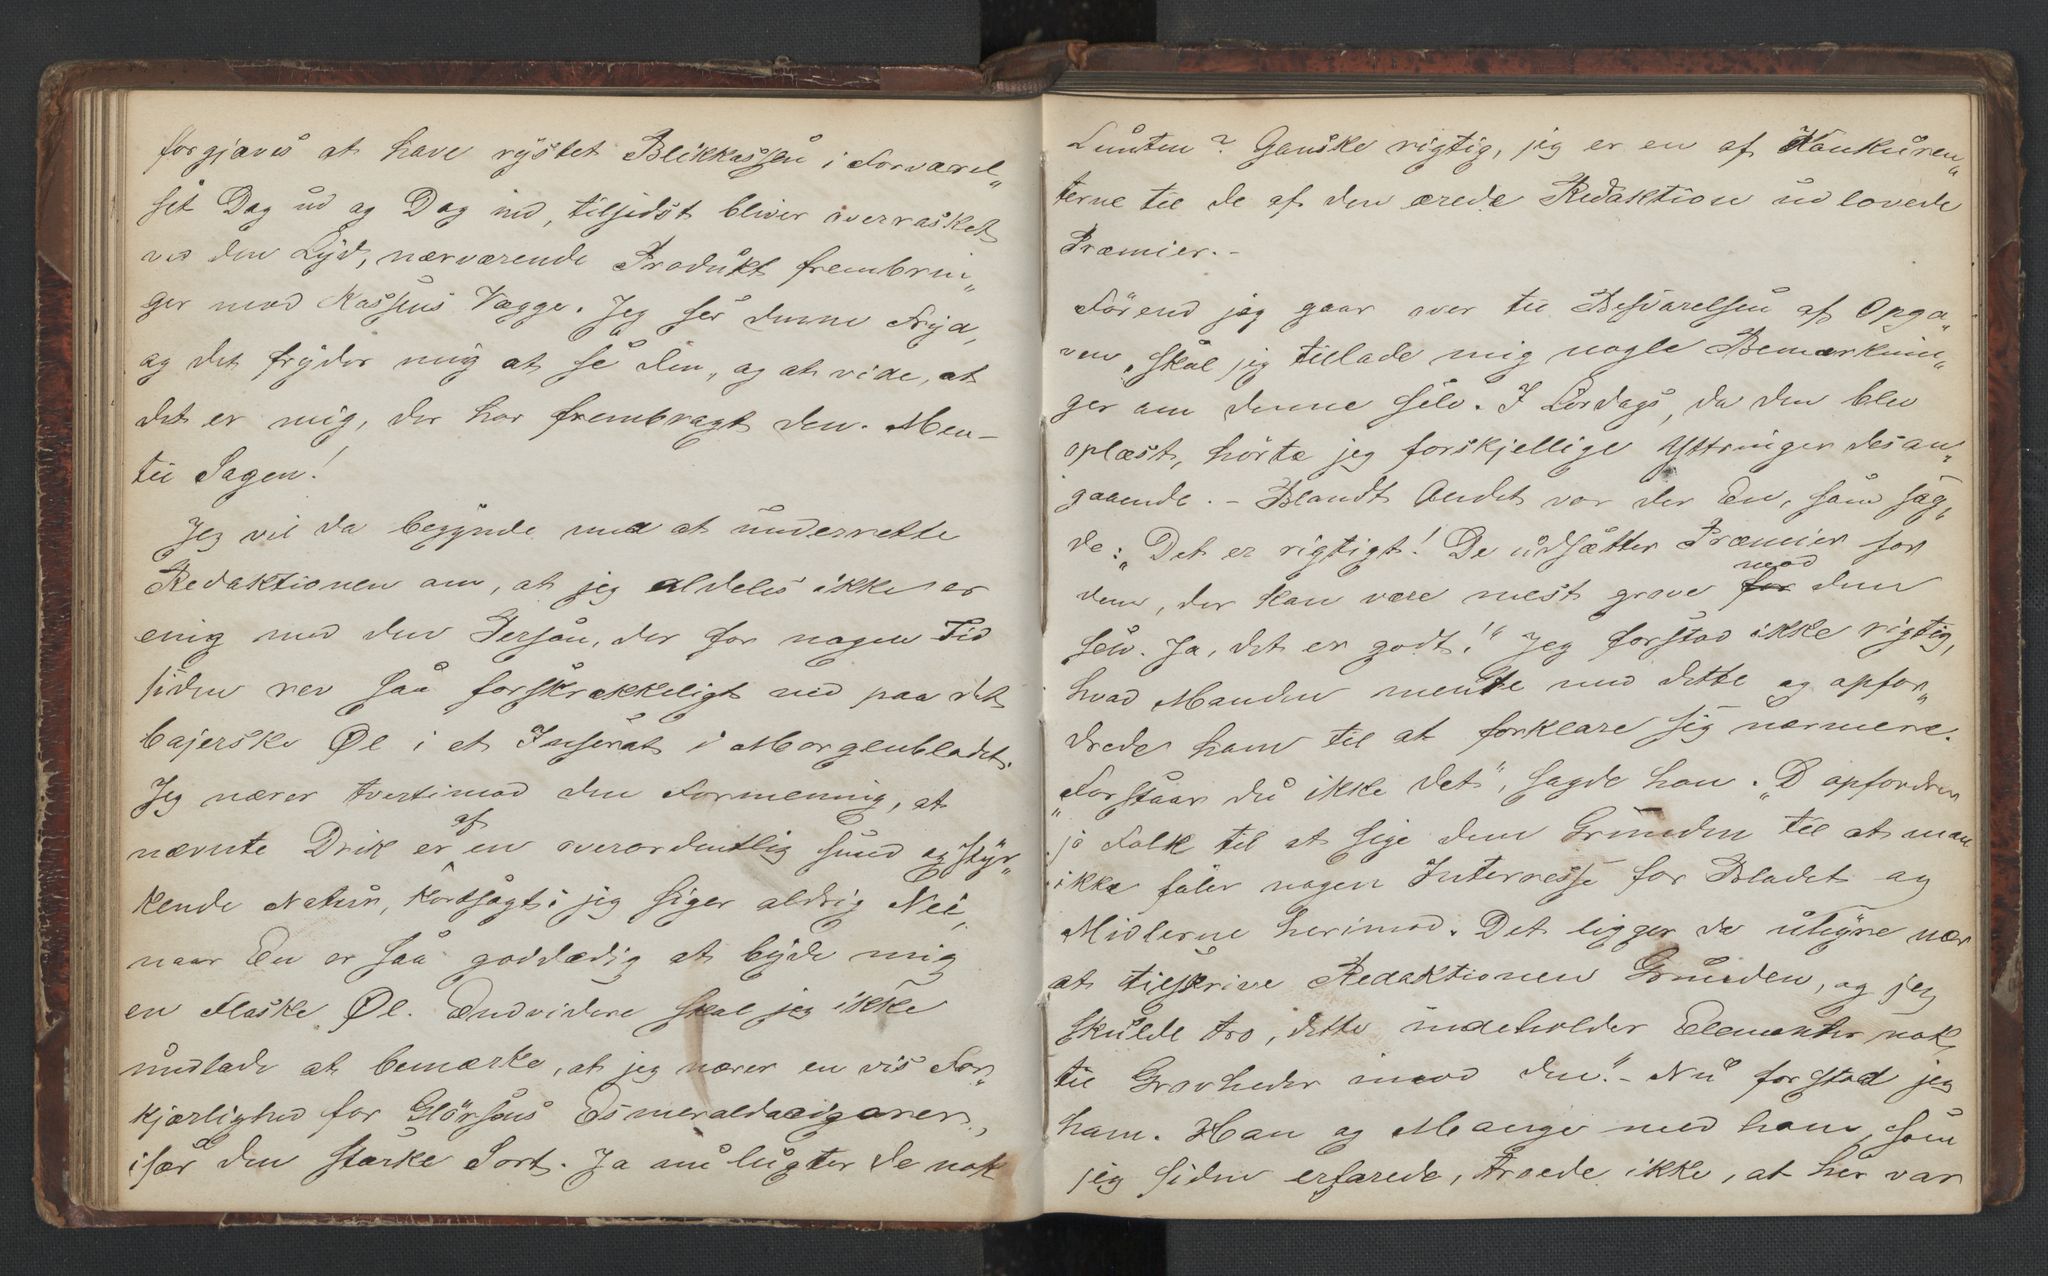 forgjæves at have rystet Blikkassen i Forværel„
set Dag ud og Dag ind, tilsidst bliver overrasket
ved den Lyd, nærværende Produkt frembrin„
ger mod Kassens Vægge. Jeg ser denne Fryd,
og det fryder mig at se den, og at vide, at
det er mig, der har frembragt den. Men –
til Sagen!
Jeg vil da begynde med at underrette
Redaktionen om, at jeg aldeles ikke er
enig med den Person, der for nogen Tid
siden rev saa forskrækkeligt ned paa det
bajerske Øl i et Inserat i Morgenbladet.
Jeg nærer tvertimod den Formening, at
af
nævnte Drik er en overordentlig sund og styr„
kende Natur, kortsagt: jeg siger aldrig Nei,
naar En er saa goddædig at byde mig
en Flaske Øl. Endvidere skal jeg ikke
undlade at bemærke, at jeg nærer en vis For„
kjærlighed for Glörsens Esmeraldacigarer,
især den stærke Sort. Ja nu lugter De nok
Lunten? Ganske rigtig, jeg er en af Konkuren„
terne til de af den ærede Redaktion udlovede
Præmier. –
Förend jeg gaar over til Besvarelsen af Opga„
ven, skal jeg tillade mig nogle Bemærknin„
ger om denne selv. I Lördags, da den blev
oplæst, hörte jeg forskjellige Yttringer desan„
gaaende. – Blandt Andet var der En, som sag„
de: „Det er rigtigt! De udsætter Præmier for
mod
dem, der kan være mest grove for dem
selv. Ja, det er godt!" Jeg forstod ikke rigtig,
hvad Manden mente med dette og opfor„
drede ham til at forklare sig nærmere.
„Forstaar du ikke det", sagde han. „D opfordrer
jo Folk til at sige dem Grunden til at man
ikke föler nogen Interesse for Bladet og
Midlerne herimod. Det ligger da uhyre nær
at tilskrive Redaktionen Grunden, og jeg
skulde tro, dette indeholder Elementer nok
til Grovheder imod den". – Nu forstod jeg
ham. Han og Mange med ham, som
jeg siden erfarede, troede ikke, at her var